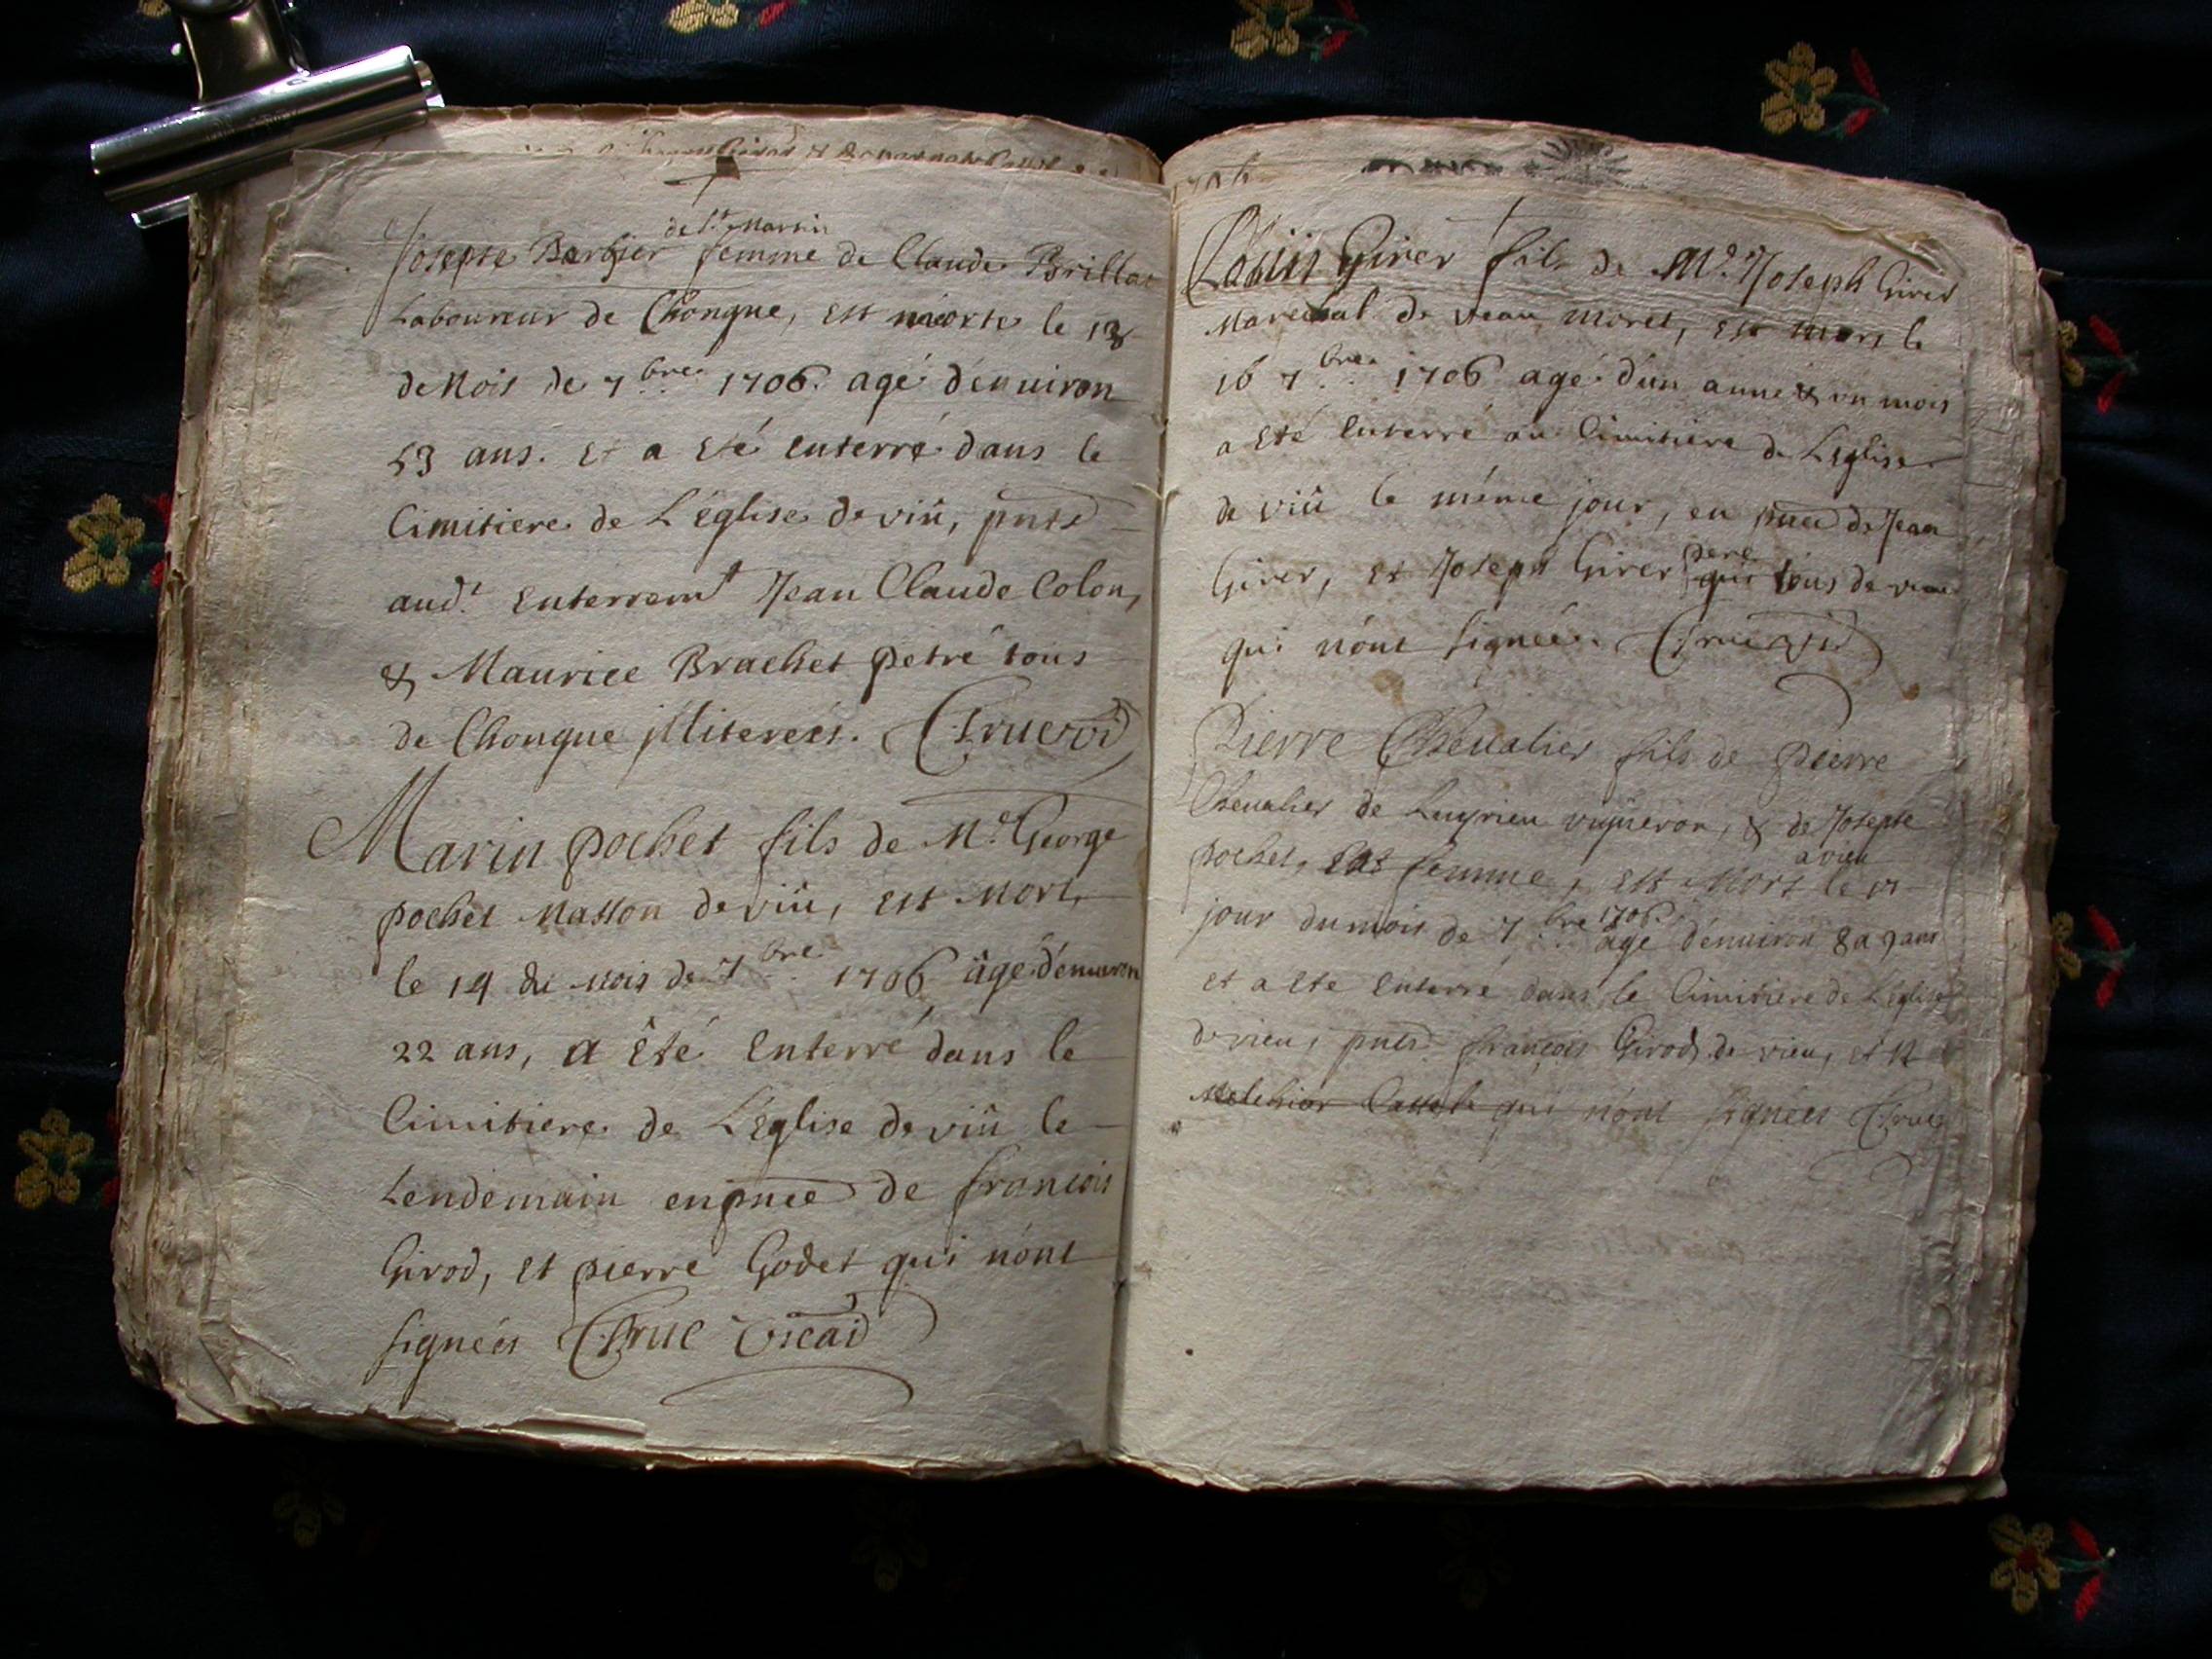 de St Martin
Josepte Barbier femme de Claude Brillat
Laboureur de Chongne, est morte le 13
de Mois de 7bre 1706. agé dénuiron
53 ans. Et a Eté enterré dans le
Cimitiere de L'églse de viû, pnts
aud.t Enterremt Jean Claude Colon,
& Maurice Brachet petré tous
de Chongne jlliterées. Truc vi
Marin pochet fils de Me. George
pochet Masson de viû, est Mort,
le 14 du Mois de 7bre 1706 âgé dénuiron
22 ans, a Été Enterré dans le
Cimitiere de L'Eglise de viû le
Lendemain en pnce de francois
Girod, et pierre Godet qui nónt
signées Truc vicai
1706
Loüis Girer fils de Me. Joseph Girer
Marechal de vieau moret, est mort le
16 7bre 1706 agé d'ún année & un mois
a Eté Enterré au Cimitière de L'Eglise
de viû le méme jour, en pnce de Jean
Girer, et Joseph Girer pere qui tous de vieu
qui nónt signées. Truc
Pierre Cheualier fils de pierre
Cheualier de Luyrieu vigneron, & de Josepte
pochet, sas femme, est Mort a vieu le
jour du mois de 7bre 1706. âgé dénuiron 8 a 9 ans
et a Eté Enterré dans le Cimitiere de L'église
de vieu, pnts francois Girod de vieu, et
Melchior qui nónt signées Truc